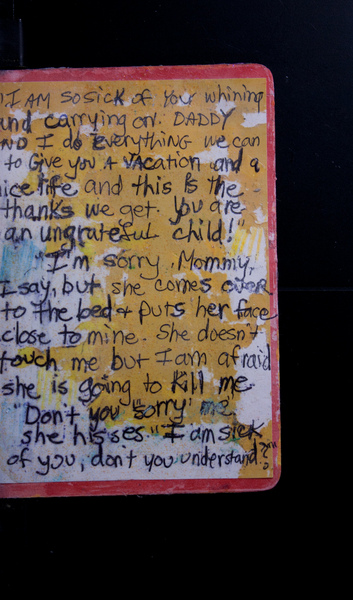 "I AM SO SICK OF YOUR whining
and carrying on. DADDY
AND I do EVERYTHING we can
to Give you A VACation and a
nice life and this is the
thanks we get. You are
an ungrateful child!"
"I'm sorry, Mommy,
I say, but she comes over
to the bed & puts her face
close to mine. She doesn't
touch me but I am afraid
she is going to kill me.
"Don't you 'sorry' me"
she hisses "I am sick
of you, don't you understand?"